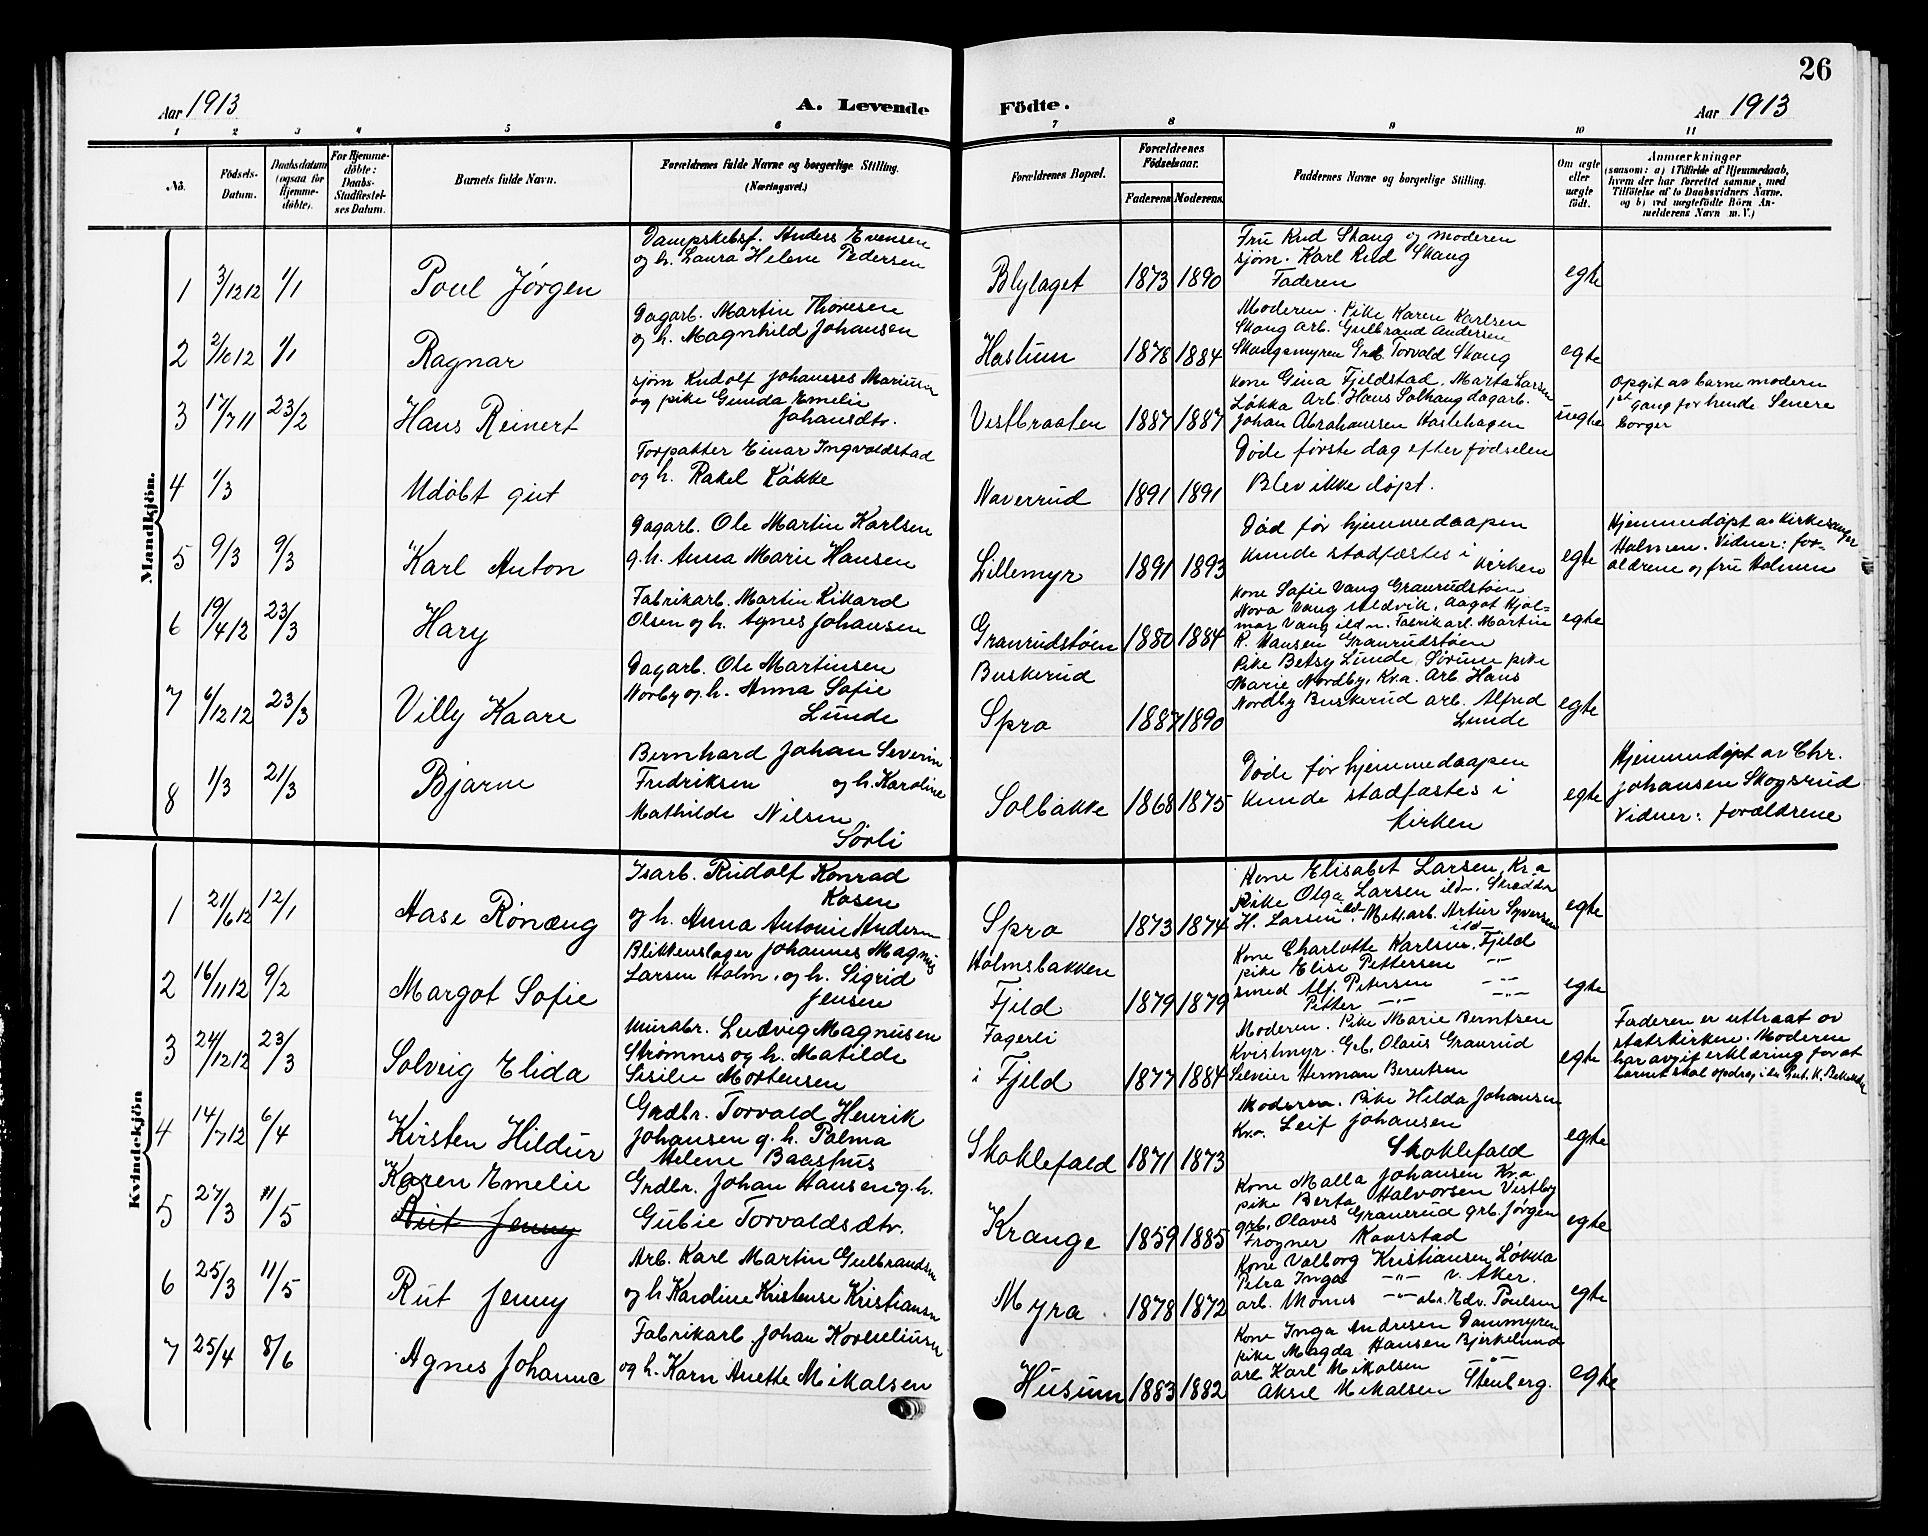 26
Aar 1913
A. Levende Födte.
Aar 1913
1 2 3 4 5 6 7 8 9 10 11
No.
Födsels-
Datum.
Daabsdatum
(ogsaa for
Hjemme-
døbte).
For Hjemme-
døbte:
Daabs-
Stadfæstel-
ses Datum.
Barnets fulde Navn.
Forældrenes fulde Navne og borgerlige Stilling.
(Næringsvei.)
Forældrenes Bopæl.
Forældrenes
Födselsaar.
Faderens. Moderens.
Faddernes Navne og borgerlige Stilling.
Om ægte
eller
uægte
født.
Anmærkninger
(saasom: a) i Tilfælde af Hjemmedaab,
hvem der har forrettet samme, med
Tilføielse af to Daabsvidners Navne.
og b) ved uægtefødte Börn An-
melderens Navn m. V.)
Mandkjön.
1 3/12 12 1/1 Poul Jørgen
Dampskibsf. Anders Evensen
og h. Laura Helene Pedersen
Blylaget 1873 1890
Fru Rud Skaug og moderen
sjøm. Karl Rud Skaug
Faderen
egte
2 2/10 12 1/1 Ragnar
Dagarb. Martin Thoresen
og h. Magnhild Johansen
Haslum 1878 1884
Moderen. Pike Karen Karlsen
Skaug arb. Gulbrand Andersen
Skaugsmyren Grb. Torvald Skaug
egte
3 17/7 11 23/2 Hans Reinert
sjøm Rudolf Johannes Mariusen
og pike Gunda Emelie
Johansdtr.
Vestbraaten 1887 1887
kone Gina Fjeldstad. Marta Larsen
Løkka arb. Hans Solhaug dagarb.
Johan Abrahamsen Haslehagen
uegte
Opgit av barnemoderen
1st gang for hende Senere
borger
4 1/3 Udøbt gut
Torpakter Einar Ingvoldstad
og h. Rakel Løkke
Naverrud 1891 1891
Døde første dag efter fødselen
Blev ikke døpt.
5 9/3 9/3 Karl Anton
Dagarb. Ole Martin Karlsen
g. h. Anna Marie Hansen
Lillemyr 1891 1893
Død før hjemmedaapen
kunde stadfæstes i kirken
egte
Hjemmedøpt av Kirkesanger
Holmen. Vidner: for-
ældrene og fru Holmen
6 19/4 12 23/3 Hary
Fabrikarb. Martin Rikard
Olsen og h. Agnes Johansen
Graurudstøen 1880 1884
kone Sofie Vang Graurudstøen
Nora Vang Ildvik. Aagot Hjal-
mar Vang ildn. Fabrikarb. Martin
R. Hansen Graurudstøen
egte
7 6/12 12 23/3 Villy Kaare
Dagarb. Ole Martinsen
Norby og h. Anna Sofie
Lunde
Buskerud
Spro 1887 1890
Pike Betsy Lunde Sørum pike
Marie Nordby, Kr.a. Arb Hans
Nordby Buskerud arb. Alfred
Lunde
egte
8 1/3 21/3 Bjarne
Bernhard Johan Severin
Fredriksen og h. Karoline
Mathilde Nilsen
Sørli
Solbakke 1868 1875
Døde før hjemmedaapen
kunde stadfæstes i
kirken
egte
Hjemmedøpt av Chr.
Johansen Skogsrud
Vidner: forældrene
Kvindekjön
1 21/6 12 12/1 Aase Rønaug
Isarb. Rudolf Konrad
Kosen
og h. Anna Antonie Andersen
Spro 1873 1874
Kone Elisabet Larsen, Kr.a
Pike Olga Larsen ildn. Skrædder
H. Larsen ild- Mek.arb. Artur Syversen
ild-
egte
2 16/11 12 9/2 Margot Sofie
Blikkenslager Johannes Magnus
Larsen Holm. og h. Sigrid
Jensen
Holmsbakken
Fjeld 1879 1879
Kone Charlotte Karlsen. Fjeld
pike Elise Pettersen -"-
smed Alf. Petersen -"-
Petter -"- -"-
egte
3 24/12 12 23/3 Solveig Elida
Murabr. Ludvig Magnusen
Strømnes og h. Matilde
Sisilie Mortensen
Fagerli
i Fjeld 1877 1884
Moderen. Pike Marie Berntsen
Kvistmyr. Grb. Olaus Graurud
Herman Berntsen
egte
Faderen er uttraat av
statskirken. Moderen
har avgit erklæring for at
barnet skal opdrag i ev. lut. K. Bekendelse
4 14/7 12 6/4 Kirsten Hildur
Grdbr. Torvald Henrik
Johansen g. h. Palma
Helene Baashus
Skoklefald 1871 1873
Moderen. Pike Hilda Johansen
Kr.a. Leif Johansen
Skoklefald
egte
5 27/3 11/5 Karen Emelie
Rut Jenny
Grdbr. Johan Hansen g. h.
Gubie Torvaldsdtr.
Krange 1859 1885
Kone Malla Johansen Kr.a
pike Berta Halvorsen Vestby
grb. Olaves Graurud grb. Jørgen
Frogner Kaarstad
egte
6 25/3 11/5 Rut Jenny
Arb. Karl Martin Gulbrandsen
og h Karoline Kristense Kristiansen
Myra. 1878 1872
Kone Valborg Kristiansen Løkka
Petra Inga -"- V. Aker.
arb. Mons -"- abr. Edv. Poulsen
egte
7 25/4 8/6 Agnes Johanne
Fabrikarb Johan Korneliusen
og h. Karn Anette Mikalsen
Husum 1883 1882
Kone Inga Andresen Dammyren
pike Magda Hansen Bjerkelund
arb Karl Mikalsen -"-
Aksel Mikalsen Stenberg.
egte